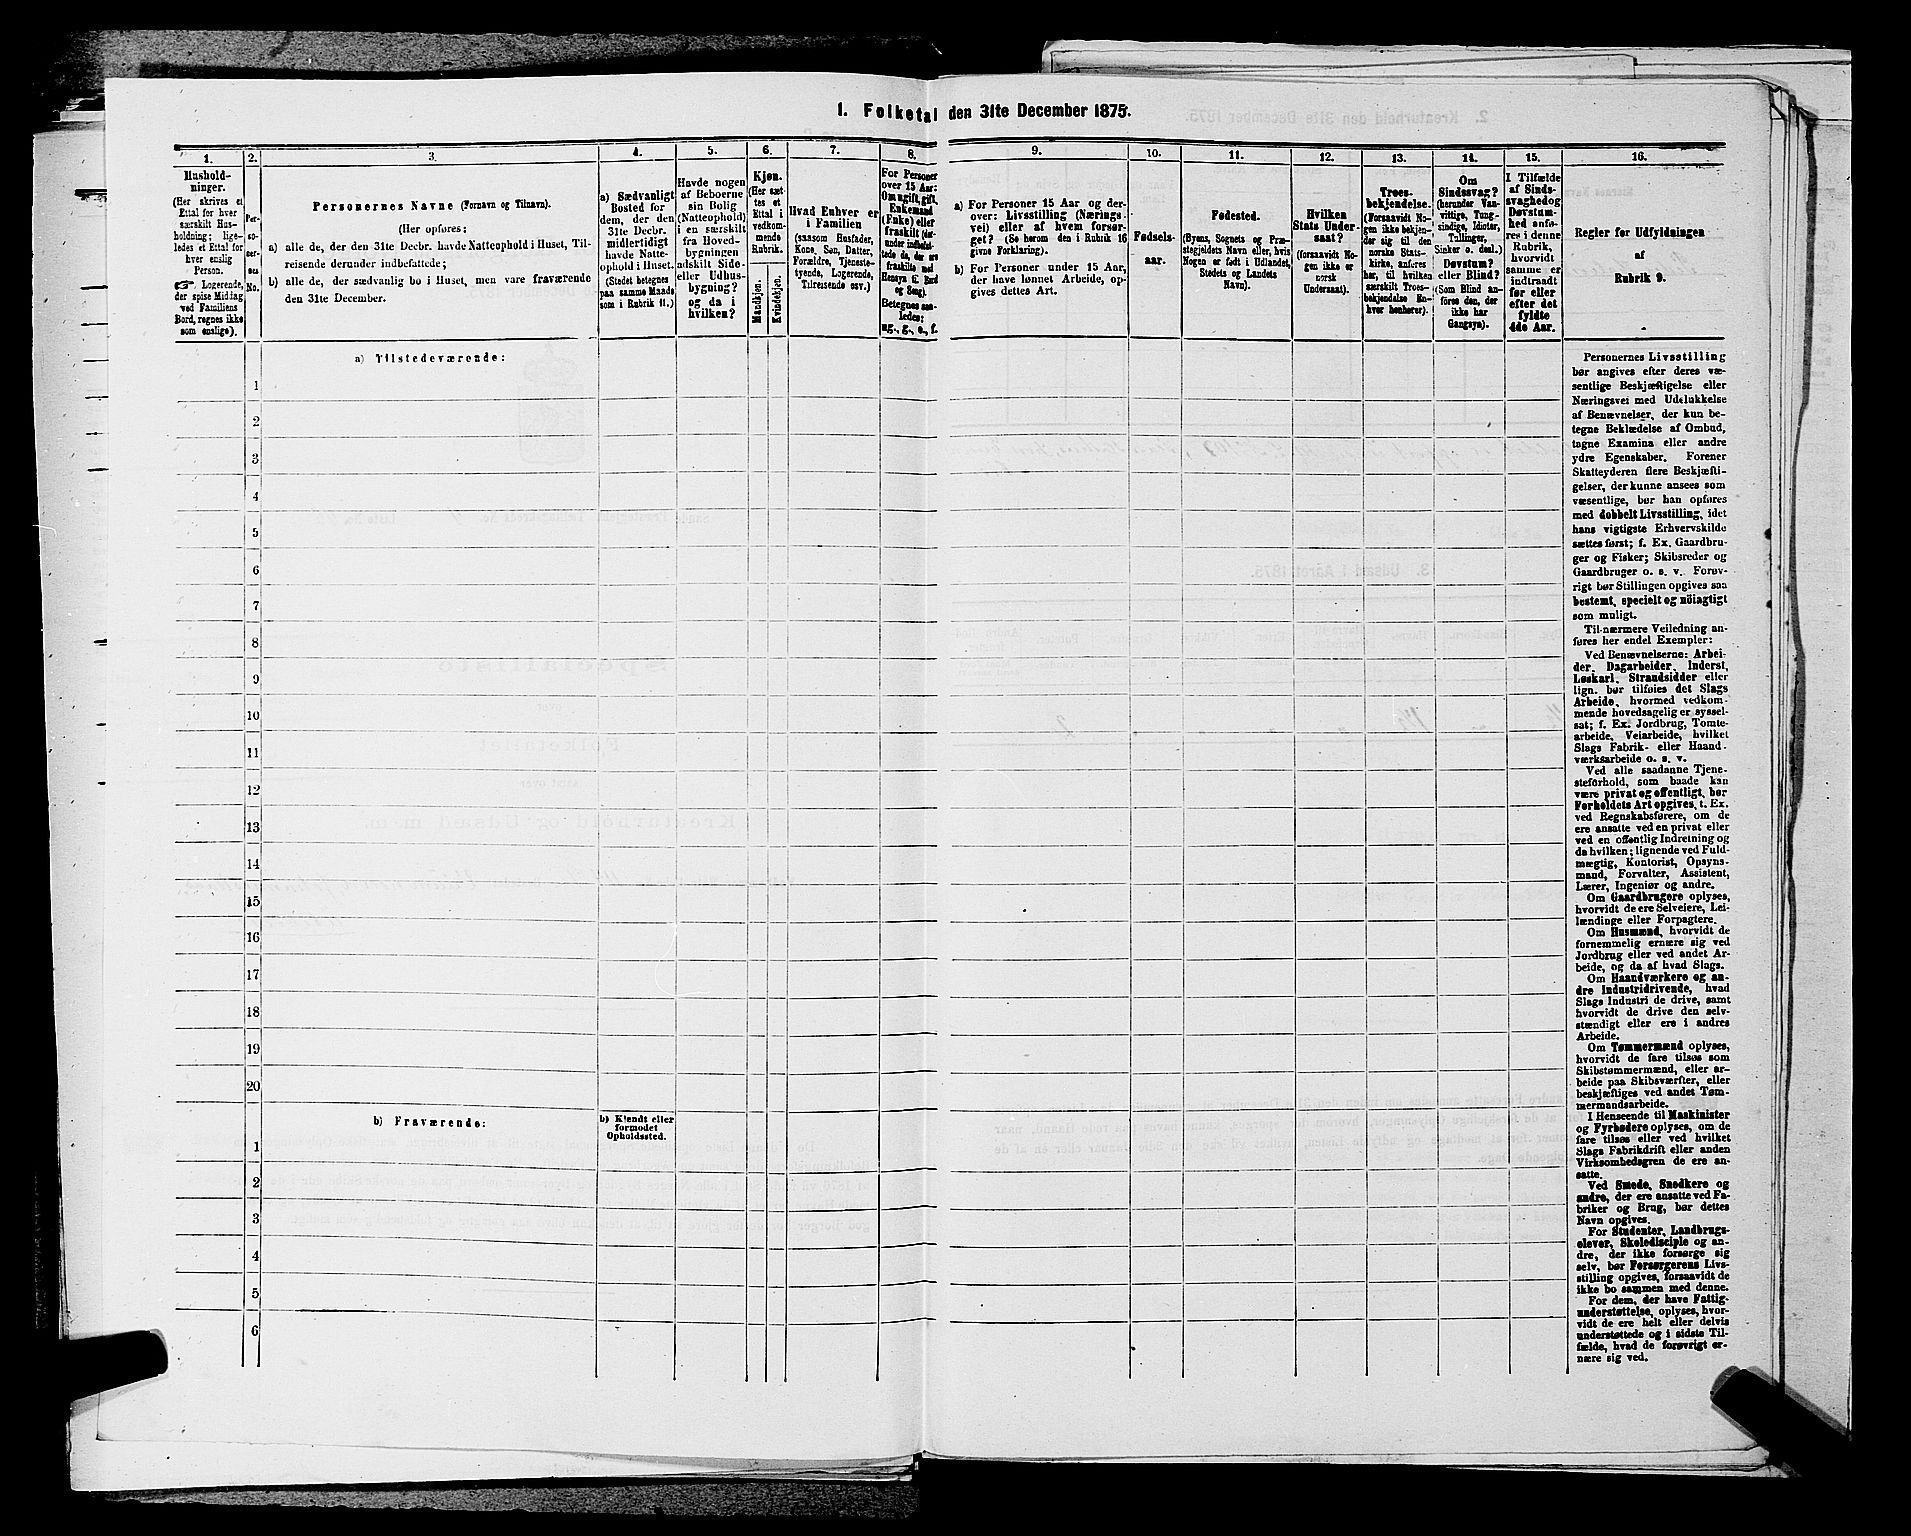 1. Folketal den 31te December 1875.
1.
2.
3.
4.
5.
6.
7.
8.
9.
10.
11.
12.
13.
14.
15.
16.
Hushold-
ninger.
(Her skrives et
Ettal for hver
særskilt Hus-
holdning; lige-
ledes et Ettal for
hver enslig
Person.
☞ Logerende,
der spise Middag
ved Familiens
Bord, regnes ikke
som enslige).
Per-
so-
ner-
nes
No.
Personernes Navne (Fornavn og Tilnavn).
(Her opføres:
a) alle de, der den 31te Decbr. havde Natteophold i Huset, Til-
reisende derunder indbefattede;
b) alle de, der sædvanlig bo i Huset, men vare fraværende
den 31te December.
a) Sædvanligt
Bosted for
dem, der den
31te Decbr.
midlertidigt
havde Natte-
ophold i Huset.
(Stedet betegnes
paa samme Maade
som i Rubrik 11.)
Havde nogen
af Beboerne
sin Bolig
(Natteophold)
i en særskilt
fra Hoved-
bygningen
adskilt Side-
eller Udhus-
bygning?
og da i
hvilken?
Kjøn.
(Her sæt-
tes et
Ettal i
vedkom-
mende
Rubrik.
Mandkjøn.
Kvindekjøn.
Hvad Enhver er
i Familien
(saasom Husfader,
Kone, Søn, Datter,
Forældre, Tjeneste-
tyende, Logerende,
Tilreisende osv.)
For Personer
over 15 Aar:
Om ugift, gift,
Enkemand
(Enke) eller
fraskilt (her-
under indbefat-
tede de, der ere
fraskilte med
Hensyn til Bord
og Seng).
Betegnes saa-
ledes:
ug., g., e., f.
a) For Personer 15 Aar og der-
over: Livsstilling (Nærings-
vei) eller af hvem forsør-
get? (Se herom den i Rubrik 16
givne Forklaring).
b) For Personer under 15 Aar,
der have lønnet Arbeide, op-
gives dettes Art.
Fødsels-
aar.
Fødested.
(Byens, Sognets og Præ-
stegjeldets Navn eller, hvis
Nogen er født i Udlandet,
Stedets og Landets
Navn).
Hvilken
Stats Under-
saat?
(forsaavidt No-
gen ikke er
norsk
Undersaat).
Troes-
bekjendelse.
(Forsaavidt No-
gen ikke bekjen-
der sig til den
norske Stats-
kirke, anføres
her, til hvilken
særskilt Troes-
bekjendelse En-
hver henhører).
Om
Sindssvag?
(herunder Van-
vittige, Tung-
sindige, Idioter,
Tullinger,
Sinker o. desl.)
Døvstum?
eller Blind?
(Som Blind an-
føres den, der
ikke har
Gangsyn).
I Tilfælde
af Sinds-
svaghed og
Døvstum-
hed anfø-
res i denne
Rubrik,
hvorvidt
samme er
indtraadt
før eller
efter det
fyldte
4de Aar.
Regler for Udfyldningen
af
Rubrik 9.
a) Tilstedeværende:
1
2
3
4
5
6
7
8
9
10
11
12
13
14
15
16
17
18
19
20
b) Fraværende:
b) Kjendt eller
formodet
Opholdssted.
1
2
3
4
5
6
Personernes Livsstilling
bør angives efter deres væ-
sentlige Beskjæftigelse eller
Næringsvei med Udelukkelse
af Benævnelser, der kun be-
tegne Beklædelse af Ombud,
tagne Examina eller andre
ydre Egenskaber. Forener
Skatteyderen flere Beskjæfti-
gelser, der kunne ansees som
væsentlige, bør han opføres
med dobbelt Livsstilling, idet
hans vigtigste Erhvervskilde
sættes først; f. Ex. Gaardbru-
ger og Fisker; Skibsreder og
Gaardbruger o. s. v. Forøv-
rigt bør Stillingen opgives saa
bestemt, specielt og nöiagtigt
som muligt.
Til nærmere Veiledning an-
føres her endel Exempler:
Ved Benævnelserne: Arbei-
der, Dagarbeider, Inderst,
Løskarl, Strandsidder eller
lign. bør tilføies det Slags
Arbeide, hvormed vedkom-
mende hovedsagelig er syssel-
sat; f. Ex. Jordbrug, Tomte-
arbeide, Veiarbeide, hvilket
Slags Fabrik- eller Haand-
værksarbeide o. s. v.
Ved alle saadanne Tjene-
steforhold, som baade kan
være privat og offentligt, bør
Forholdets Art opgives, t. Ex.
ved Regnskabsførere, om de
ere ansatte ved en privat eller
ved en offentlig Indretning og
da hvilken; lignende ved Fuld-
mægtig, Kontorist, Opsyns-
mand, Forvalter, Assistent,
Lærer, Ingeniør og andre.
Om Gaardbrugere oplyses,
hvorvidt de ere Selveiere, Lei-
lændinge eller Forpagtere.
Om Husmænd, hvorvidt de
fornemmelig ernære sig ved
Jordbrug eller ved andet Ar-
beide, og da af hvad Slags.
Om Haandværkere og an-
dre Industridrivende, hvad
Slags Industri de drive, samt
hvorvidt de drive den selv-
stændigt eller ere i andres
Arbeide.
Om Tømmermænd oplyses,
hvorvidt de fare tilsøs som
Skibstømmermænd, eller ar-
beide paa Skibsværfter, eller
beskjæftiges ved andet Tøm-
mermandsarbeide.
I Henseende til Maskinister
og Fyrbødere oplyses, om de
fare tilsøs eller ved hvilket
Slags Fabrikdrift eller anden
Virksomhedsgren de ere an-
satte.
Ved Smede, Snedkere og
andre, der ere ansatte ved Fa-
briker og Brug, bør dettes
Navn opgives.
For Studenter, Landbrugs-
elever, Skoledisciple og an-
dre, der ikke forsørge sig
selv, bør Forsørgerens Livs-
stilling opgives, forsaavidt de
ikke bo sammen med denne.
For dem, der have Fattig-
understøttelse, oplyses, hvor-
vidt de ere helt eller delvis
understøttede og i sidste Til-
fælde, hvad de forøvrigt er-
nære sig ved.